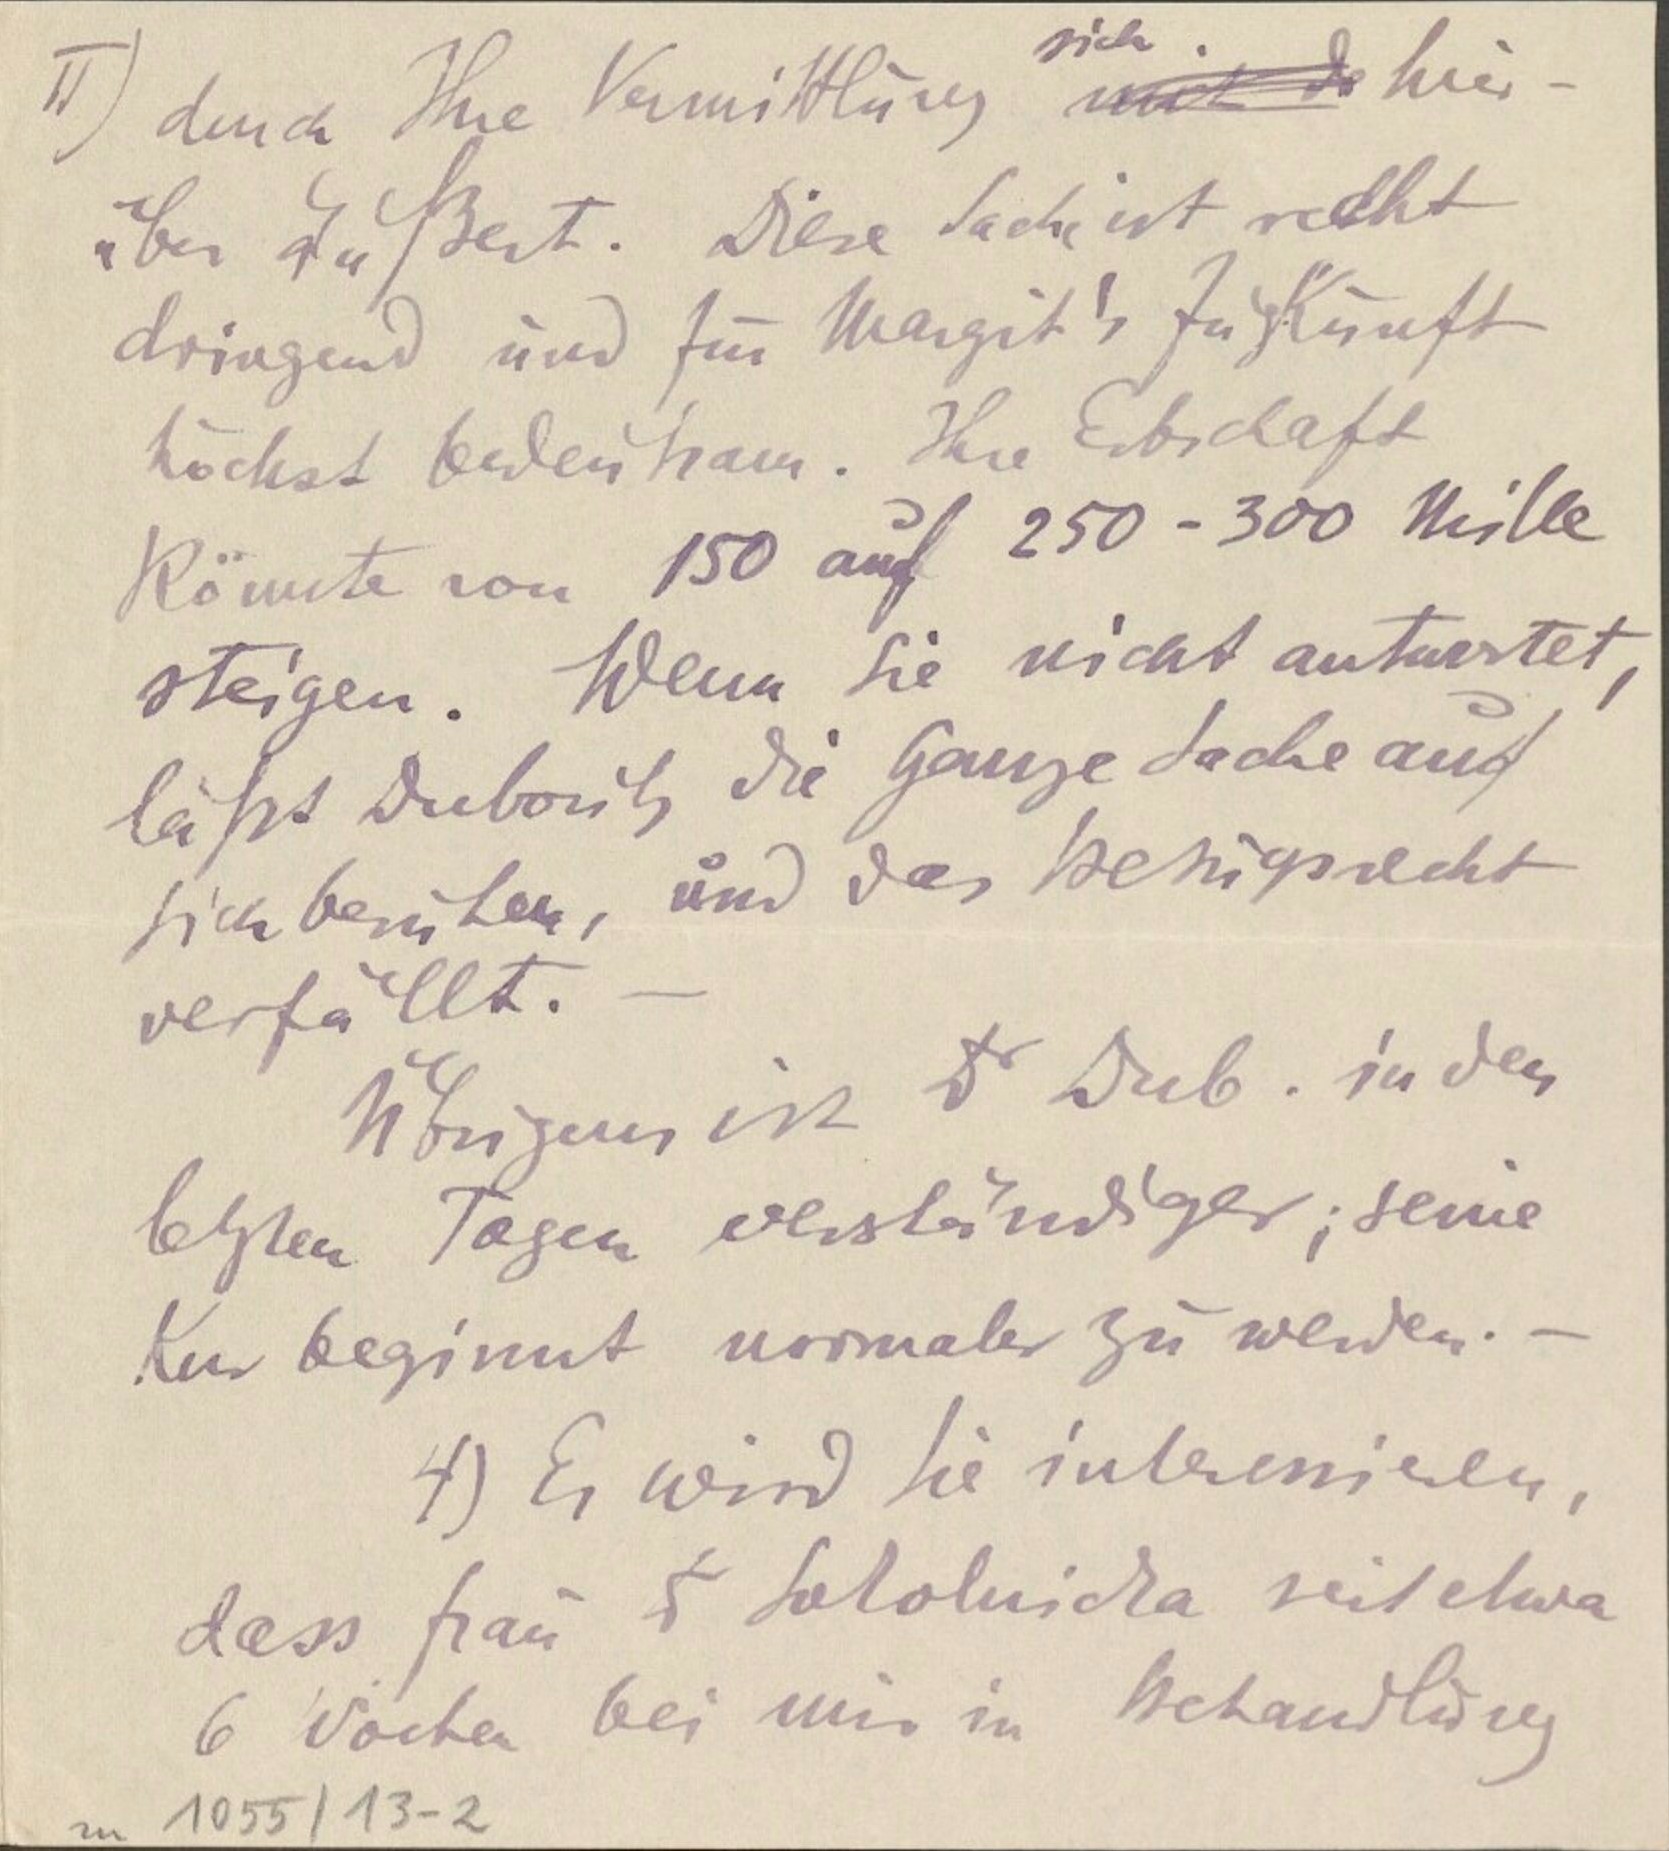 II) durch Ihre Vermittlung sich mit de hier-
über äußert. Diese Sache ist recht
dringend und für Margit's Zukunft
höchst bedeutsam. Ihre Erbschaft
könnte von 150 auf 250-300 Mille
steigen. Wenn sie nicht antwortet,
läßt Dubovitz die Ganze Sache auf
sich beruhen, und das Bezugsrecht
verfällt. —
Übrigens ist Dr Dub. in den
letzten Tagen verständiger; seine
Kur beginnt normaler zu werden. —
4) Es wird Sie interessieren,
dass Frau Dr Sokolnicka seit etwa
6 Wochen bei mir in Behandlung
1055/13-2